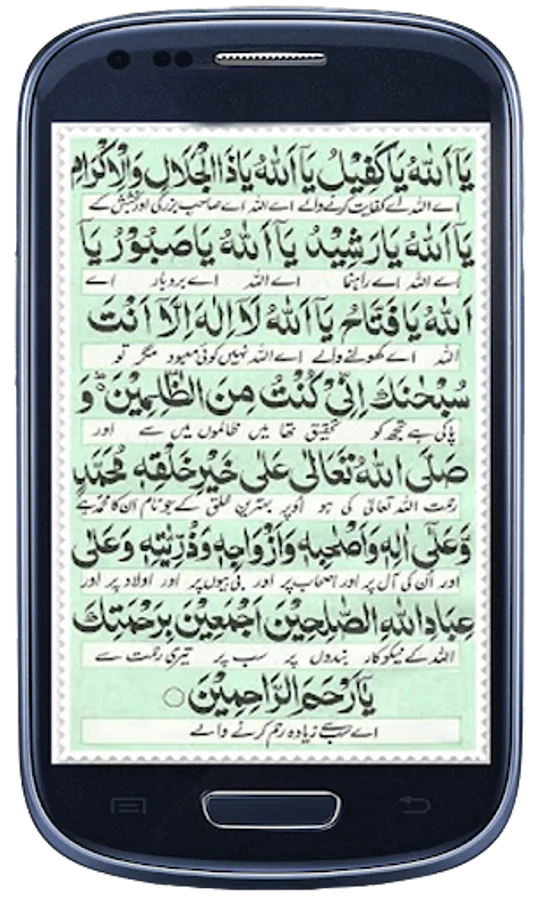 يَآ اَللّٰهُ يَا كَفِيْلُ يَآ اَللّٰهُ يَاذَا الْجَلَالِ وَالْاِكْرَامِ
اے اللہ اے کفایت کرنے والے اے اللہ اے صاحب بزرگی اور بخشش کے
يَآ اَللّٰهُ يَارَشِيْدُ يَآ اَللّٰهُ يَاصَبُوْرُ يَآ
اے اللہ اے راہنما اے اللہ اے بردبار اے
اَللّٰهُ يَافَتَّاحُ يَآ اَللّٰهُ لَآ اِلٰهَ اِلَّآ اَنْتَ
اللہ اے کھولنے والے اے اللہ نہیں کوئی معبود مگر تو
سُبْحٰنَكَ اِنِّيْ كُنْتُ مِنَ الظّٰلِمِيْنَ وَ
پاکی ہے تجھ کو تحقیق تھا میں ظالموں میں سے اور
صَلَّى اللّٰهُ تَعَالٰى عَلٰى خَيْرِ خَلْقِهٖ مُحَمَّدٍ
رحمت اللہ تعالٰی کی ہو اوپر بہترین خلق کے جو نام ان کا محمد ہے
وَّعَلٰٓى اٰلِهٖ وَاَصْحٰبِهٖ وَاَزْوَاجِهٖ وَذُرِّيّٰتِهٖ وَعَلٰى
اور ان کی آل پر اور اصحاب پر اور بی بیوں پر اور اولاد پر اور
عِبَادِ اللّٰهِ الصّٰلِحِيْنَ اَجْمَعِيْنَ بِرَحْمَتِكَ
اللہ کے نیکوکار بندوں پر سب پر تیری رحمت سے
يَآ اَرْحَمَ الرَّاحِمِيْنَ ○
اے سب سے زیادہ رحم کرنے والے